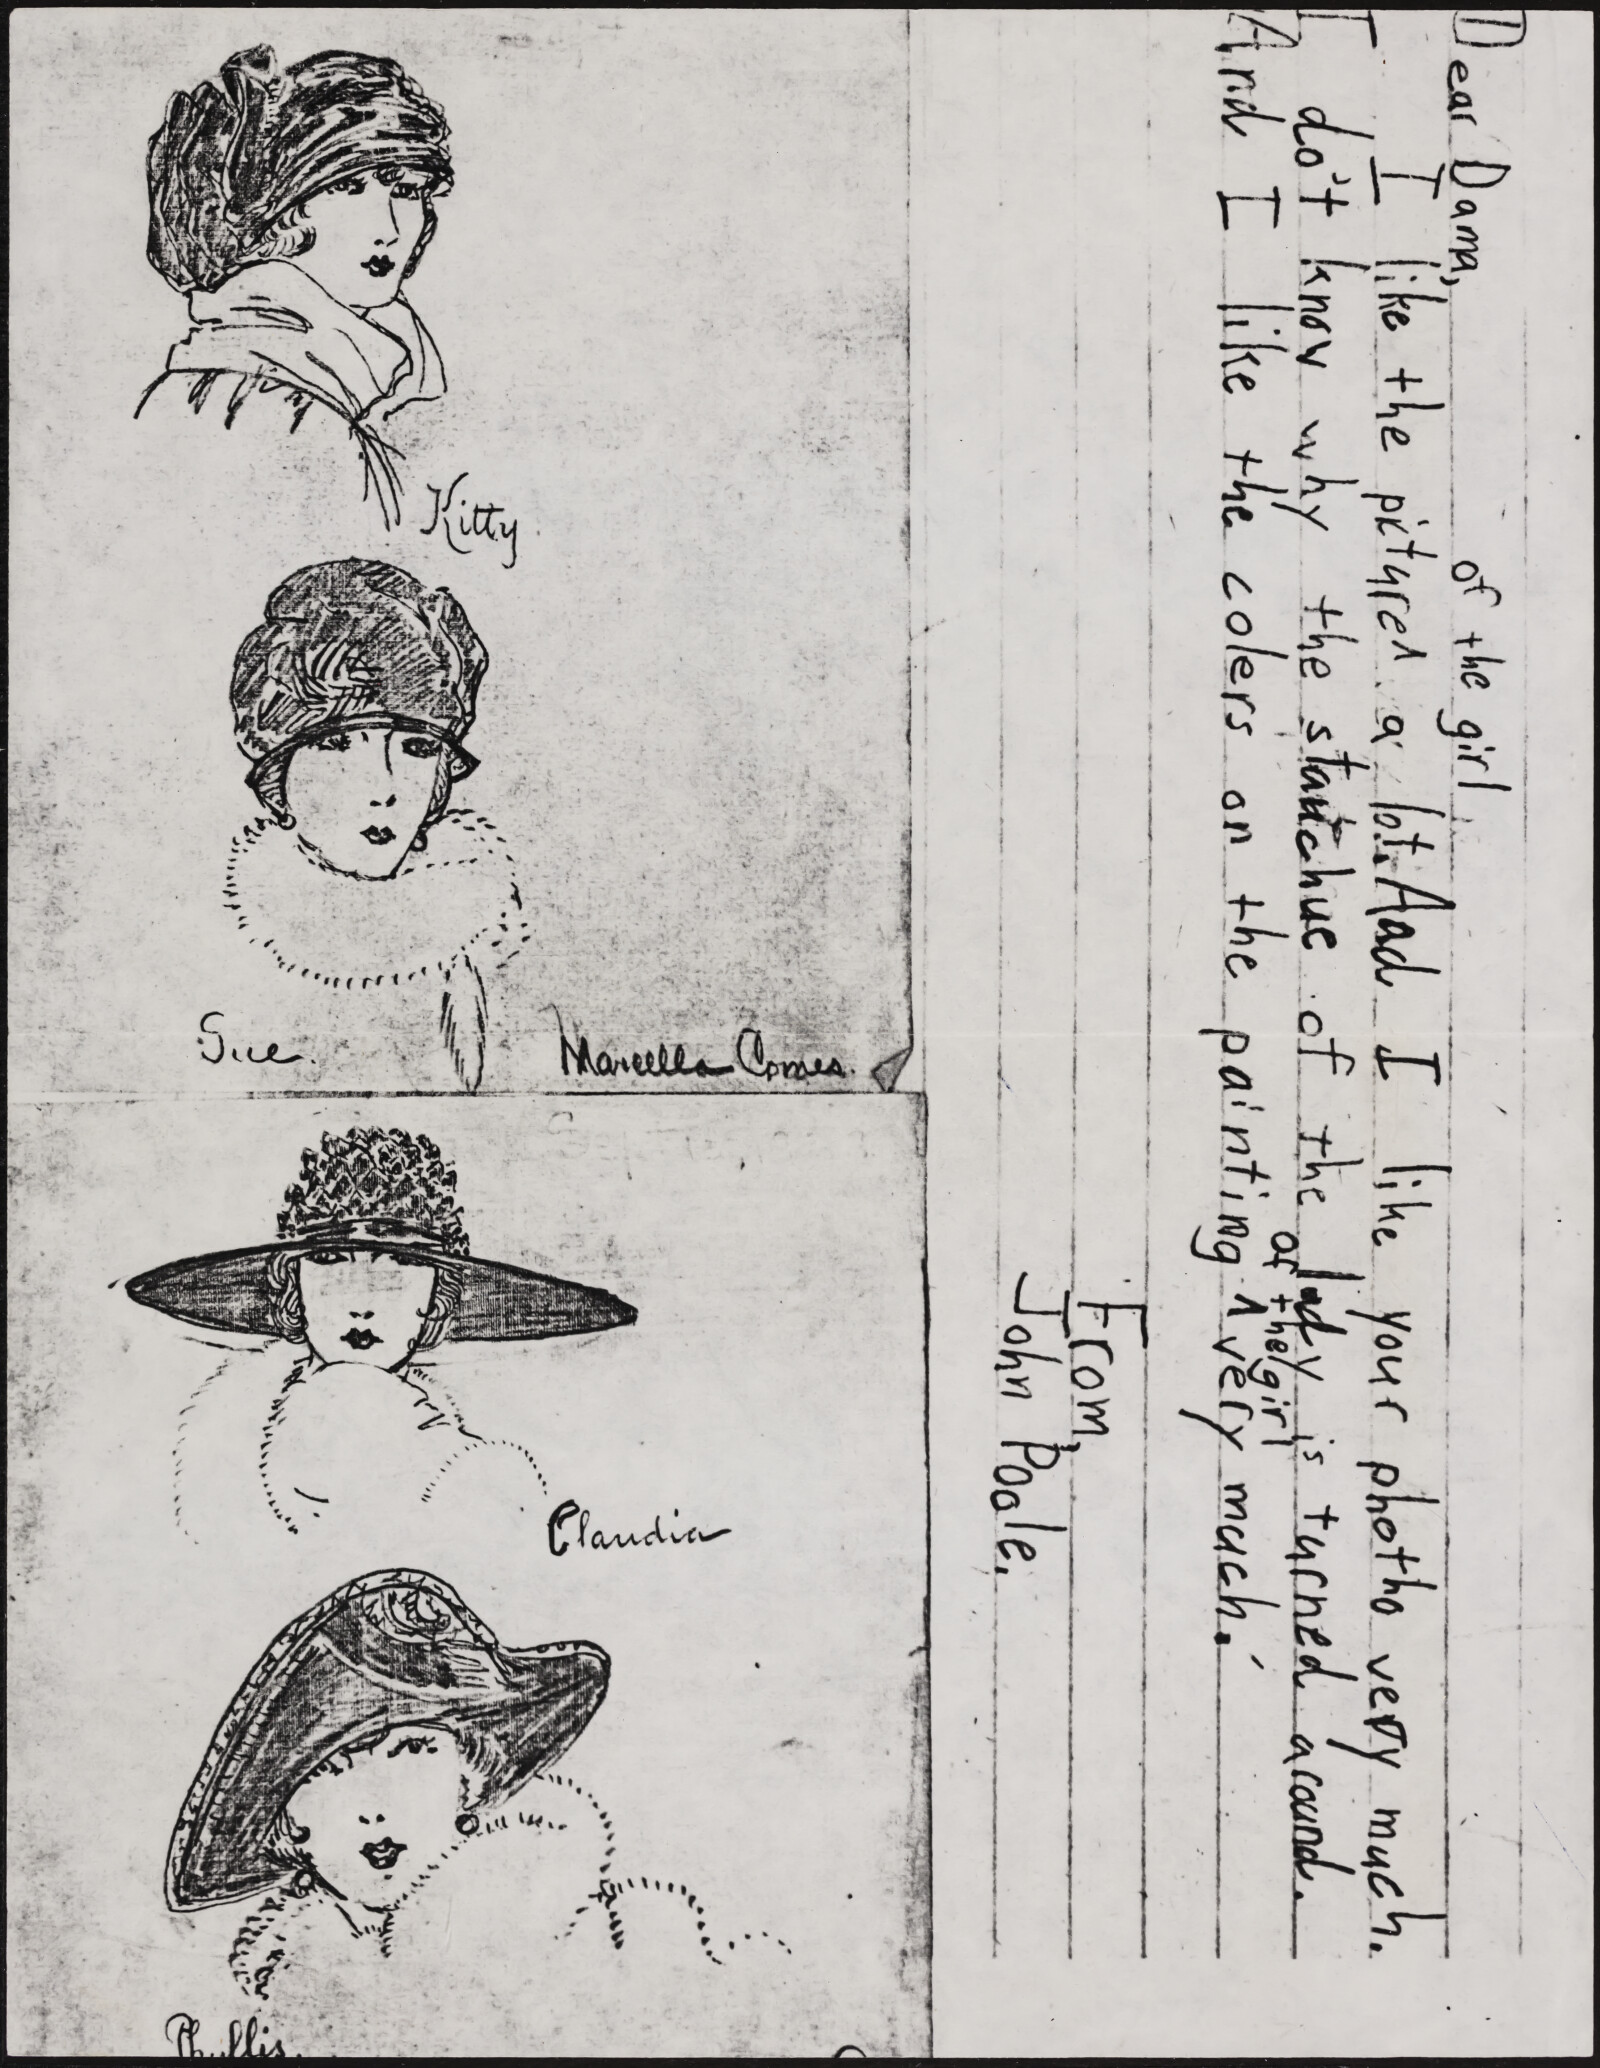 Kitty
Sue.
Marcella Comes.
Claudia
Phyllis.
Dear Dama,
of the girl
I like the piture ʌ a lot. And I like your photho very much.
I do't know why the stauchue of the lady is turned around.
of the girl
And I like the colers on the painting ʌ very much.
From,
John Poole.